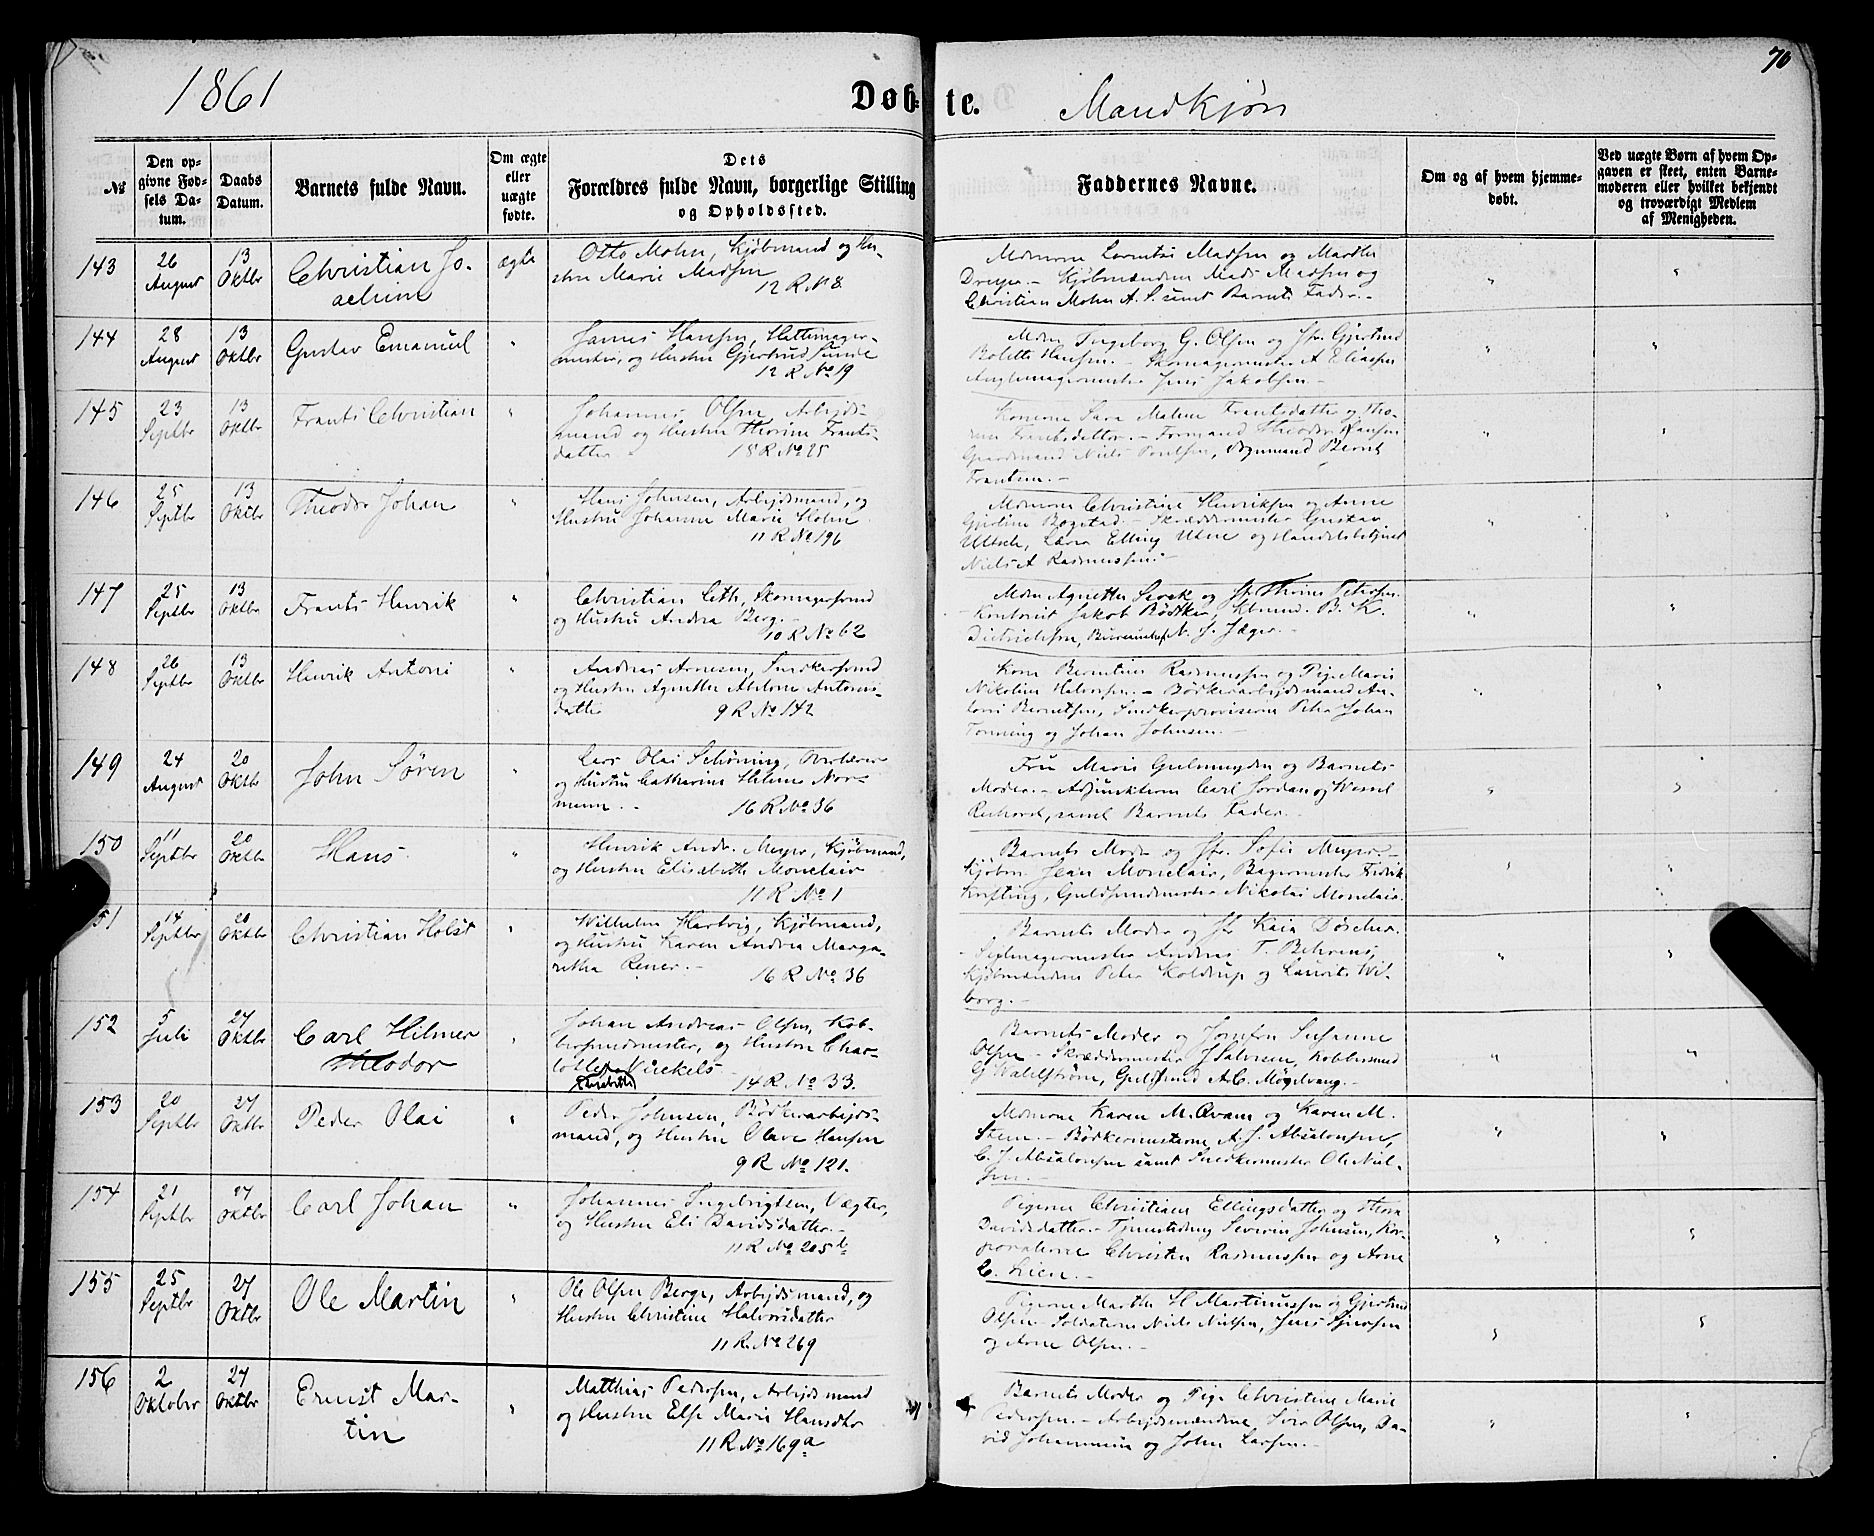 1861 Døbte. Mandkjøn 70
№ Den opgivne Fødsels Datum. Daabs Datum. Barnets fulde Navn. Om ægte eller uægte fødte. Dets Forældres fulde Navn, borgerlige Stilling og Opholdssted. Faddernes Navne. Om og af hvem hjemmedøbt. Ved uægte Børn af hvem Opgaven er skeet, enten Barnemoderen eller hvilket bekjendt og troværdigt Medlem af Menigheden.
143 26 August 13 Oktbr Christian Joachim ægte
Otto Mohn, Kjøbmand og Hustru Marie Madsen
12 R № 8
Madsen og Marthe
Kjøbmændene Mads Madsen og
Christian Mohn A. S. samt Barnets Fader.-
144 28 August 13 Oktbr Gustav Emanuel "
Hansen, Hattemagermester, og Hustru Gjertrud Sunde
12 R № 19
Ingeborg G. Olsen og Jfr. Gjertrud
Bolette Hansen. A Eliassen
Jens Jakobsen -
145 23 Septbr 13 Oktbr Frants Christian "
Johannes Olsen, Arbejdsmand og Hustru Thorine Frantsdatter
18 R № 25
Konerne Sara Malene Frantsdatter og
Frantsdatter. - Formand Theodor Hansen
Gaardmand Niels Poulsen, Bernt
Frantsen.-
146 25 Septbr 13 Oktbr Theodor Johan "
Hans Johnsen, Arbejdsmand, og
Hustru Johanne Marie Holm
11 R № 196
Christine Henriksen og Anne
Bogstad - Skræddermester Gustav
Elling Utne og Handelsbetjent
Niels A Rasmussen.-
147 25 Septbr 13 Oktbr Frants Henrik "
Christian Leth, Skomagersvend
og Hustru Andrea Berg.-
10 R № 62
Agnette og Jfr Thrine Petersen.
- Kontorist Jakob Bødtker, B. K.
Dietrichsen, N. J. Jæger.-
148 26 Septbr 13 Oktbr Henrik Antoni "
Andreas Arnesen, Snedkersvend
og Hustru Agnethe Antonisdatter
9 R № 142
Kone Berntine Rasmussen og Pige Maria
Nikoline Halvorsen.- Bødkerarbejdsmand
Berntsen, Peter Johan
Tønning og Johan Johnsen.-
149 24 August 20 Oktbr John Søren "
Lars Olai Schøning, Overlærer
og Hustru Catharine Helene Normann.-
16 R № 36
Fru Marie og Barnets
Moder.- Adjunkterne Carl Jordan og Wessel
samt Barnets Fader.-
150 11 Septbr 20 Oktbr Hans "
Henrik Andr. Meyer, Kjøbmand,
og Hustru Elisabeth Monclair
11 R № 1
Barnets Moder og Jfr. Sofie Meyer.-
Kjøbm. Jean Monclair, Bagermester Fredrik
Krefting, Guldsmedmester Nikolai Monclair.
151 14 Septbr 20 Oktbr Christian Holst "
Wilhelm Hartvig, Kjøbmand,
og Hustru Karen Andrea Margaretha Rener.-
16 R № 36
Barnets Moder og Jfr Kaia Döscher.
- Seilmagermester Andreas T. Behrens,
Kjøbmændene Peter Koldrup og Laurits Wiborg.-
152 5 Juli 27 Oktbr Carl Hilmer Theodor "
Johan Andreas Olsen, Kobbersmedmester, og Hustru Charlotte Nickels
Elisabeth
14 R № 33.
Barnets Moder og Jomfru Susanne
Olsen - Skræddermester J Salvesen, Kobbersmed
Wahlstrøm, Guldsmed A. C. Møgelvang.-
153 20 Septbr 27 Oktbr Peder Olai "
Peder Johnsen, Bødkerarbejdsmand, og Hustru Olave Hansen
9 R № 121.
Karen M. Qvam og Karen M.
Steen.- Bødkermesterne A. J. Absalonsen,
C. J. Absalonsen samt Snedkermester Ole Nielsen.-
154 21 Septbr 27 Oktbr Carl Johan "
Johannes Ingebrigtsen, Vægter,
og Hustru Eli Davidsdatter.-
11 R № 205 b
Pigerne Christiane Ellingsdatter og Thora
Davidsdatter.- Tjenestedreng Severin Johnsen, Korporalerne Christen Rasmussen og Arne
L. Lien.-
155 25 Septbr 27 Oktbr Ole Martin "
Ole Olsen Berge, Arbejdsmand, og
Hustru Christine Halvorsdatter
11 R. № 269
Pigerne Marthe H Martinussen og Gjertrud
Olsen - Soldaterne Niels Nielsen, Jens
og Arne Olsen.-
156 2 Oktober 27 Oktbr Ernst Martin "
Matthias Pedersen, Arbejdsmand
og Hustru Else Marie Hansdtr
11 R № 169 a
Barnets Moder og Pige Christine Marie
Pedersen.- Arbejdsmændene Iver Olsen, David Johannesen og John Larsen.-